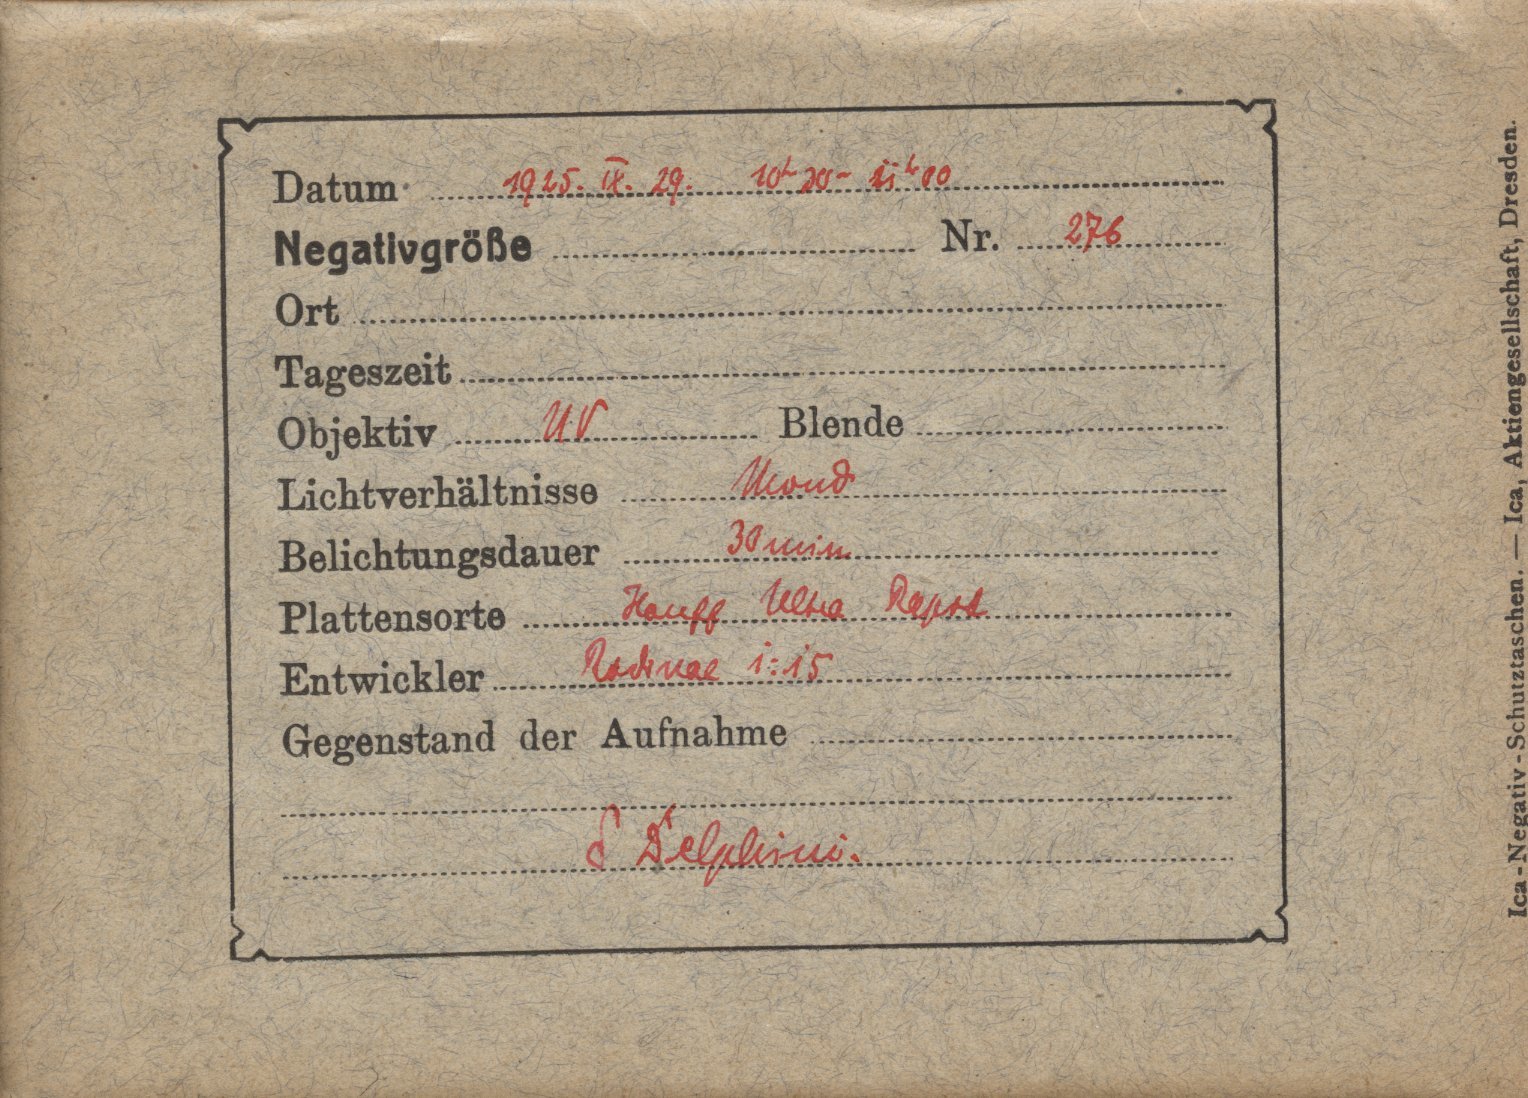 Datum 1925. IX. 29. 10h 30 - 11h 00
Negativgröße Nr. 276
Ort
Tageszeit
Objektiv UV Blende
Lichtverhältnisse Mond
Belichtungsdauer 30 min
Plattensorte Hauff Ultra Rapid
Entwickler Rodinal 1:15
Gegenstand der Aufnahme
δ Delphini.
Ica-Negativ-Schutztaschen. — Ica, Aktiengesellschaft, Dresden.